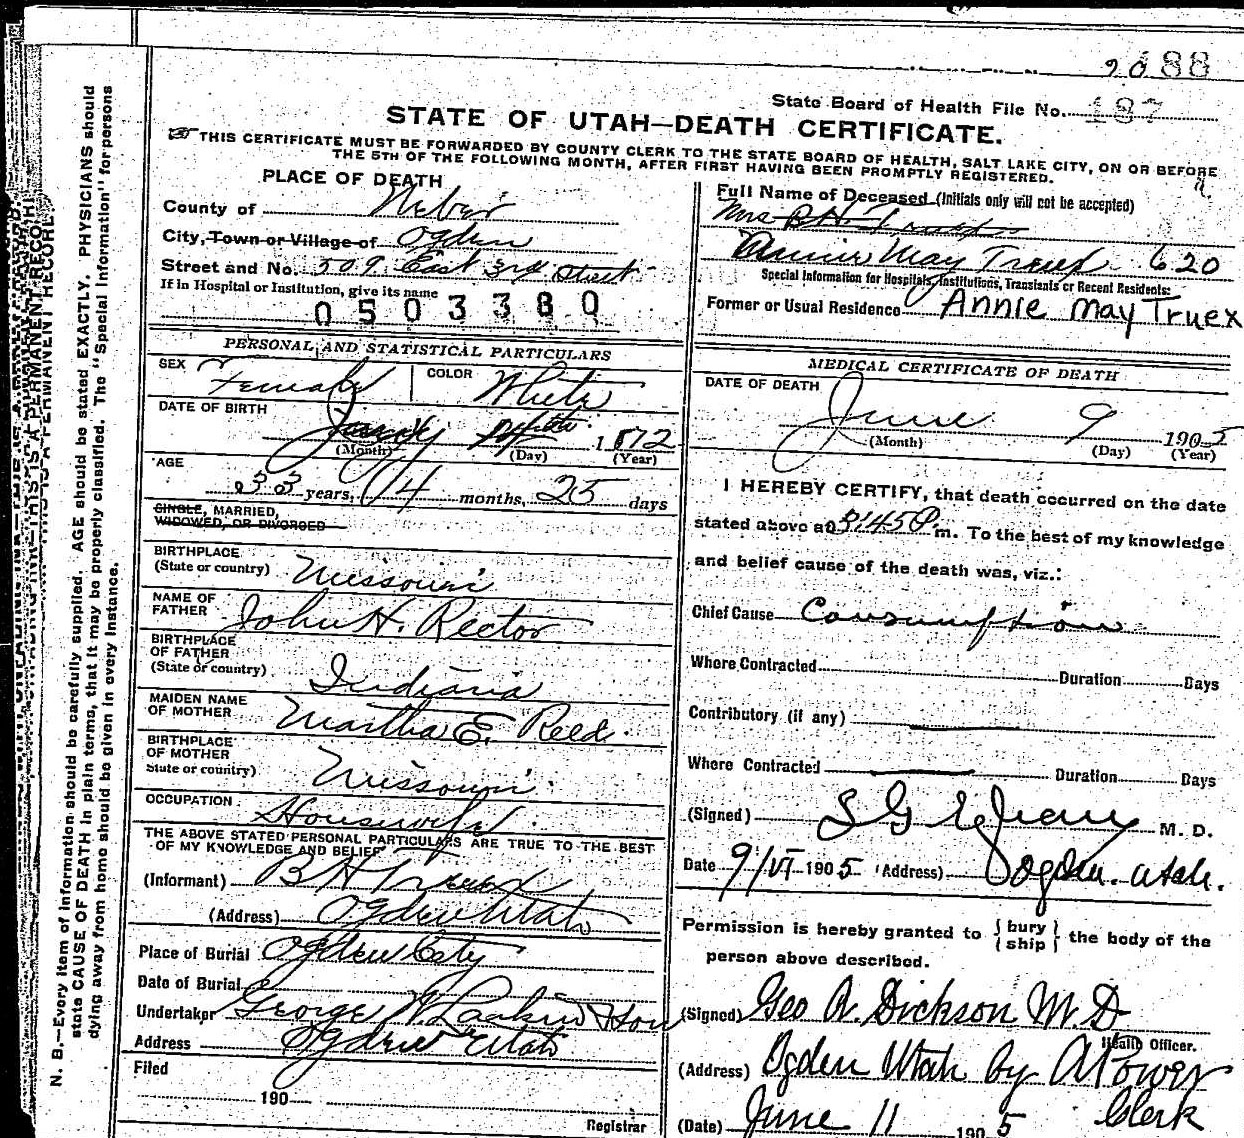 90 188
State Board of Health File No. 187
STATE OF UTAH—DEATH CERTIFICATE.
THIS CERTIFICATE MUST BE FORWARDED BY COUNTY CLERK TO THE STATE BOARD OF HEALTH, SALT LAKE CITY, ON OR BEFORE
THE 5TH OF THE FOLLOWING MONTH, AFTER FIRST HAVING BEEN PROMPTLY REGISTERED.
PLACE OF DEATH
County of Weber
City, Town or Village of Ogden
Street and No. 509 East 3rd Street
If in Hospital or Institution, give its name
0503380
Full Name of Deceased (Initials only will not be accepted)
Mrs B H Truex
Annie May Truex 620
Special Information for Hospitals, Institutions, Transients or Recent Residents:
Former or Usual Residence Annie May Truex
PERSONAL AND STATISTICAL PARTICULARS
SEX Female COLOR White
DATE OF BIRTH
1872
(Month) (Day) (Year)
AGE
33 years, 4 months, 25 days
SINGLE, MARRIED,
WIDOWED, OR DIVORCED
BIRTHPLACE
(State or country) Missouri
NAME OF
FATHER John H. Rector
BIRTHPLACE
OF FATHER
(State or country) Indiana
MAIDEN NAME
OF MOTHER Martha E. Reed.
BIRTHPLACE
OF MOTHER
State or country) Missouri.
OCCUPATION Housewife
THE ABOVE STATED PERSONAL PARTICULARS ARE TRUE TO THE BEST
OF MY KNOWLEDGE AND BELIEF
(Informant) B H Truex
(Address) Ogden Utah
Place of Burial Ogden City
Date of Burial
Undertaker George W Larkin & Son
Address Ogden Utah
Filed
190
Registrar
MEDICAL CERTIFICATE OF DEATH
DATE OF DEATH
June 9 1905
(Month) (Day) (Year)
I HEREBY CERTIFY, that death occurred on the date
stated above at 3:45 P. m. To the best of my knowledge
and belief cause of the death was, viz.:
Chief Cause Consumption
Where Contracted Duration Days
Contributory (if any)
Where Contracted Duration Days
(Signed) M. D.
Date 9/VI 1905 (Address) Ogden. Utah.
Permission is hereby granted to (bury) (ship) the body of the
person above described.
(Signed) Geo A. Dickson M.D
Health Officer.
(Address) Ogden Utah by A Power
Clerk
(Date) June 11 1905
N. B.—Every item of information should be carefully supplied. AGE should be stated EXACTLY. PHYSICIANS should
state CAUSE OF DEATH in plain terms, that it may be properly classified. The "Special Information" for persons
dying away from home should be given in every instance.